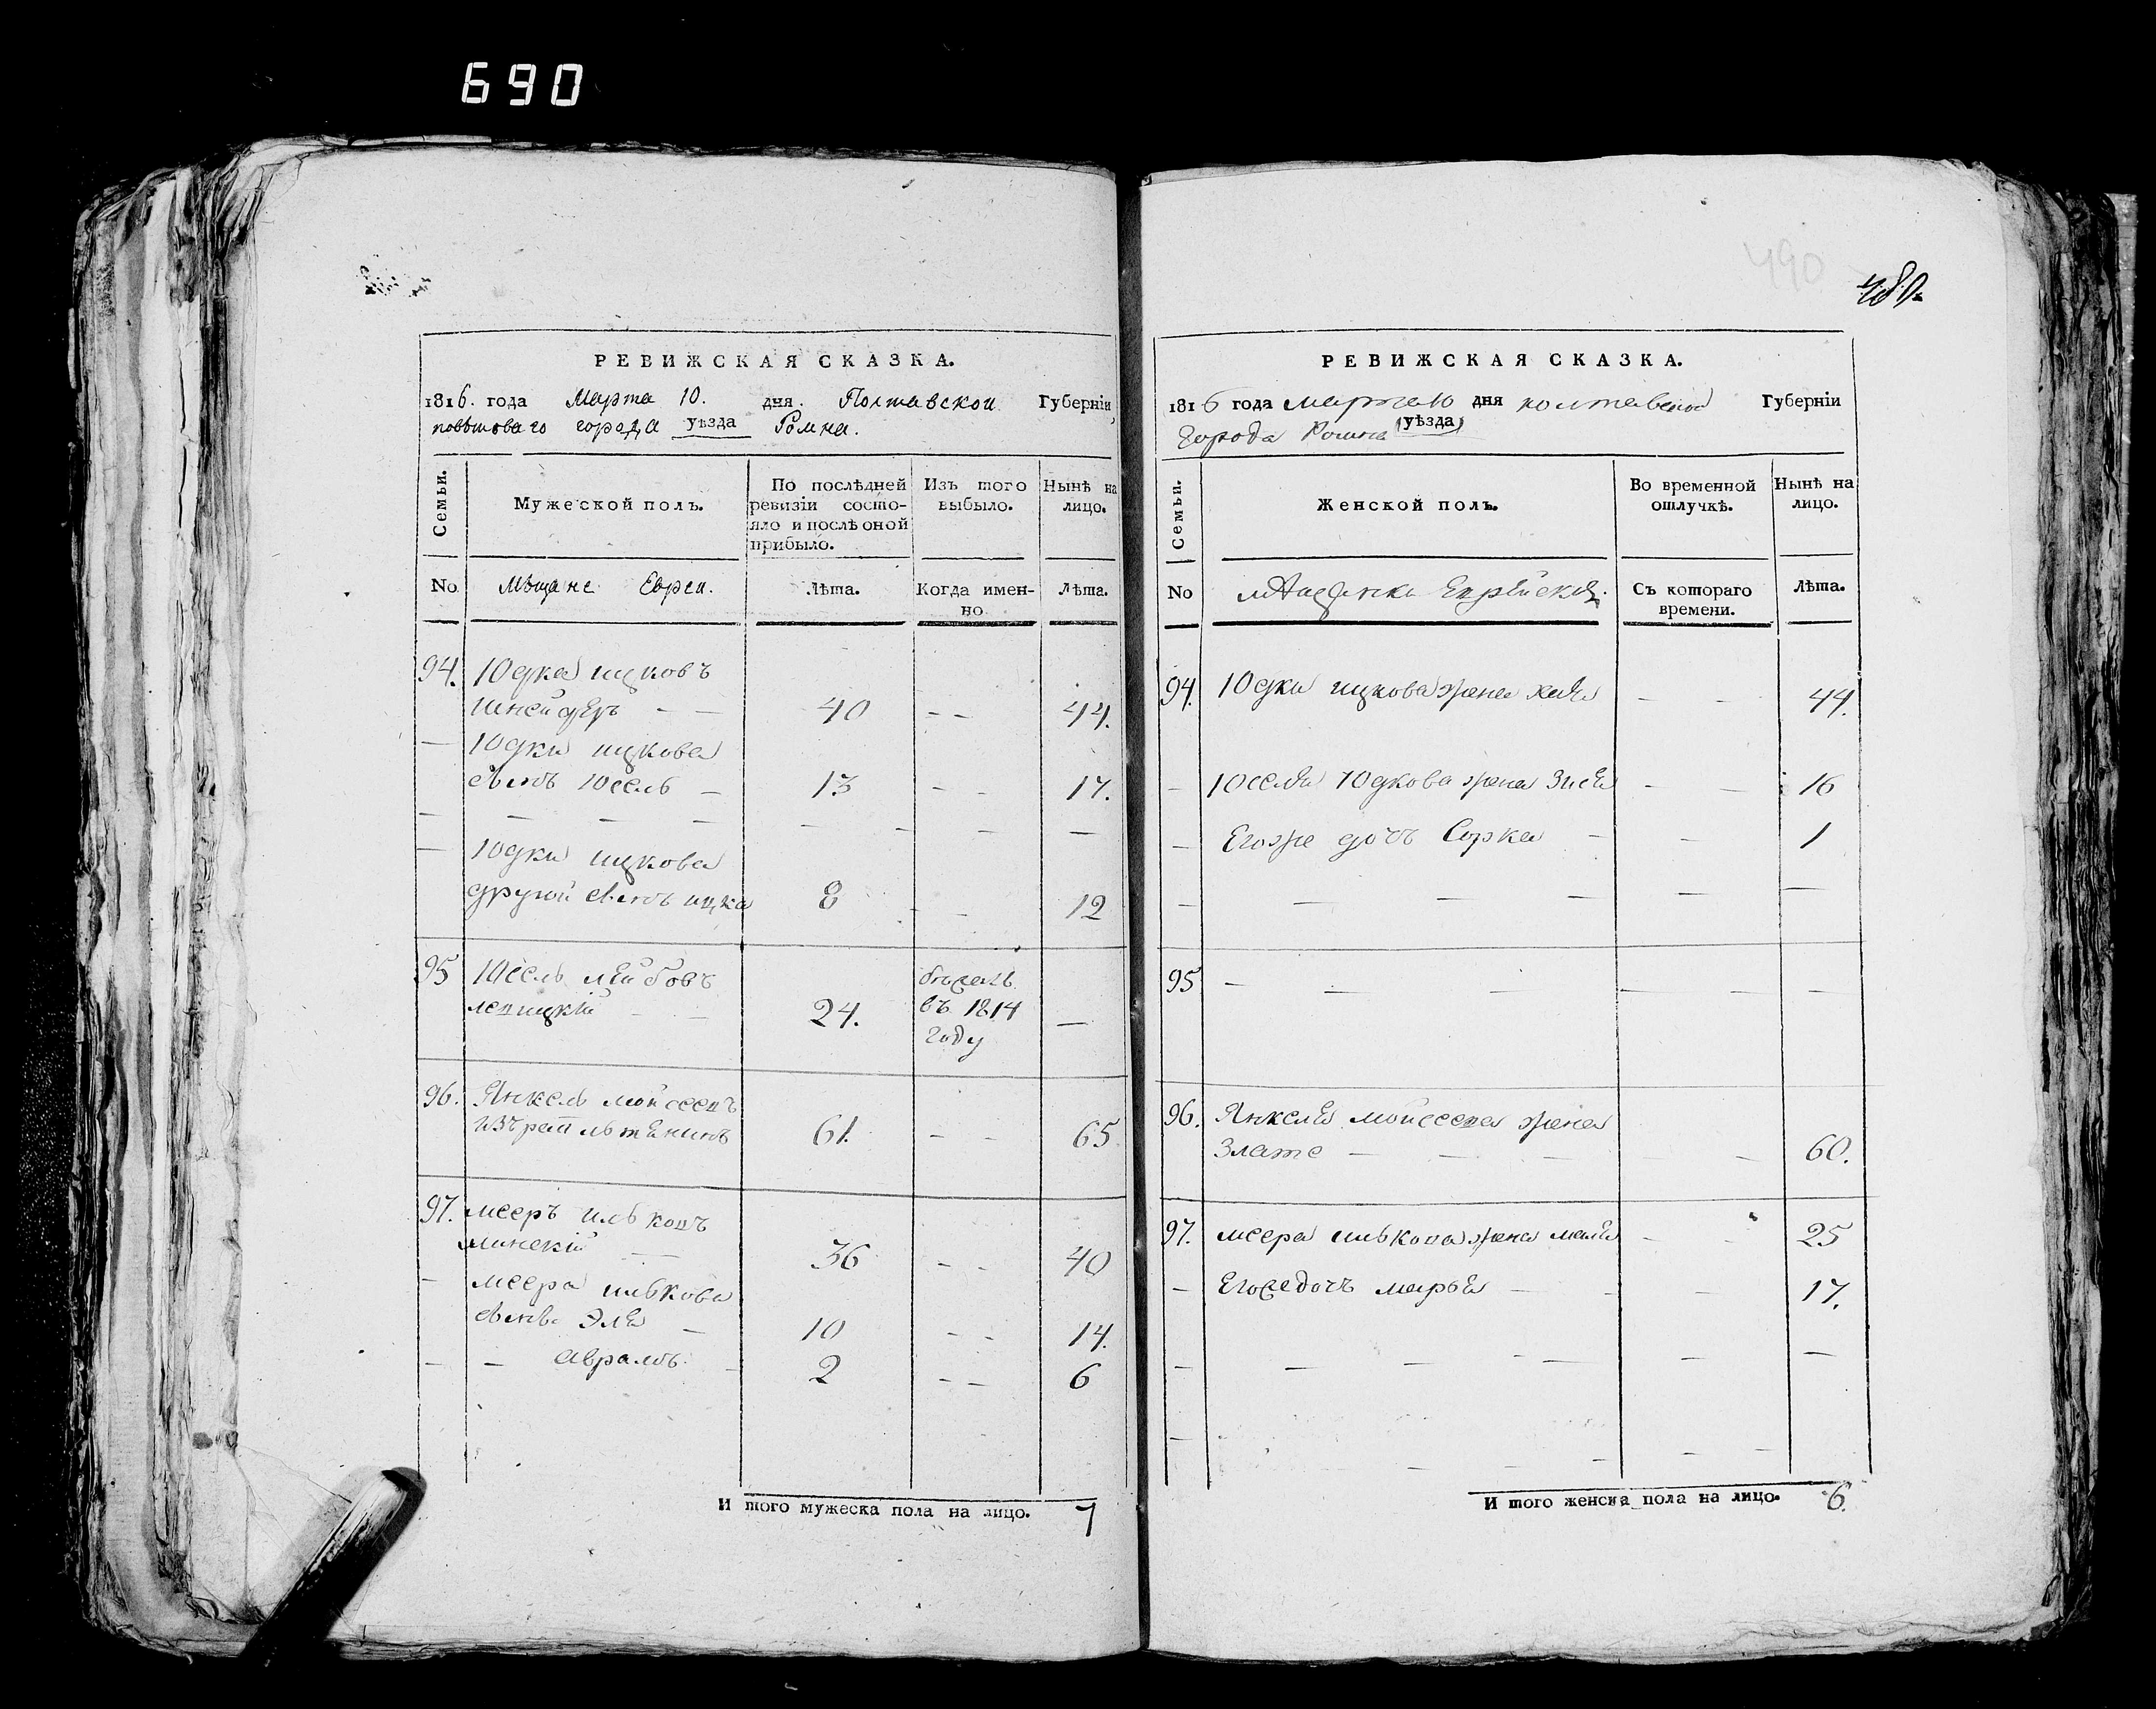 690
РЕВИЖСКАЯ СКАЗКА.
1816. года Марта 10. дня. Полтавской Губерніи,
повѣтоваго города уѣзда Ромна.
Семьи.
Мужеской полъ.
По послѣдней ревизіи состояло и послѣ оной прибыло.
Изъ того выбыло.
Нынѣ на лицо.
No
Мѣщане Евреи.
Лѣта.
Когда имен-
но
Лѣта.
94. Юдка ицковъ
Шнейдеръ — — 40 - - 44.
— Юдки ицкова
сынъ Юсель — 13 - - 17.
— — — — — - — —
— Юдки ицкова
другой сынъ ицка 8 - - 12
95 Юсель лейбовъ
24. въ 1814 —
году
96. Янкель мойсеевъ
61. - - 65
97. мееръ ильковъ
минскій — 36 - - 40
- меера илькова
сынъ Эля — 10 - - 14.
— — Аврамъ. - 2 - - 6
И того мужеска пола на лицо. 7
490
480.
РЕВИЖСКАЯ СКАЗКА.
1816 года марта 10 дня полтавской Губерніи
города Ромна уѣзда
Семьи.
Женской полъ.
Во временной отлучкѣ.
Нынѣ на лицо.
No
мѣщанки Еврейския.
Съ котораго
времени.
Лѣта.
94. Юдки ицкова жена хая - - 44.
- Юселя Юдкова жена Зися - — 16
— Егоже дочь Сорка - — 1
- — — — — —
95 - — — — — —
96. Янкеля мойсеева жена
Злата — — — — - 60.
97. меера илькова жена маля - - 25
- Егоже дочь марья — - - 17.
— — — - — — —
И того женска пола на лицо. 6.